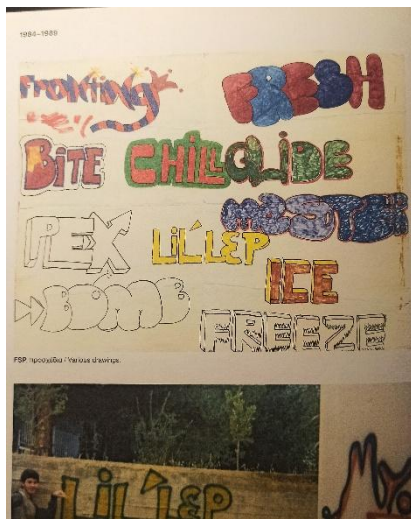 1984–1989
FRONTING FRESH
BITE CHILL GLIDE
PEX LIL'LEP
ICE
BOMB
FREEZE
FSP προσχέδια / Various drawings.
LIL'LEP